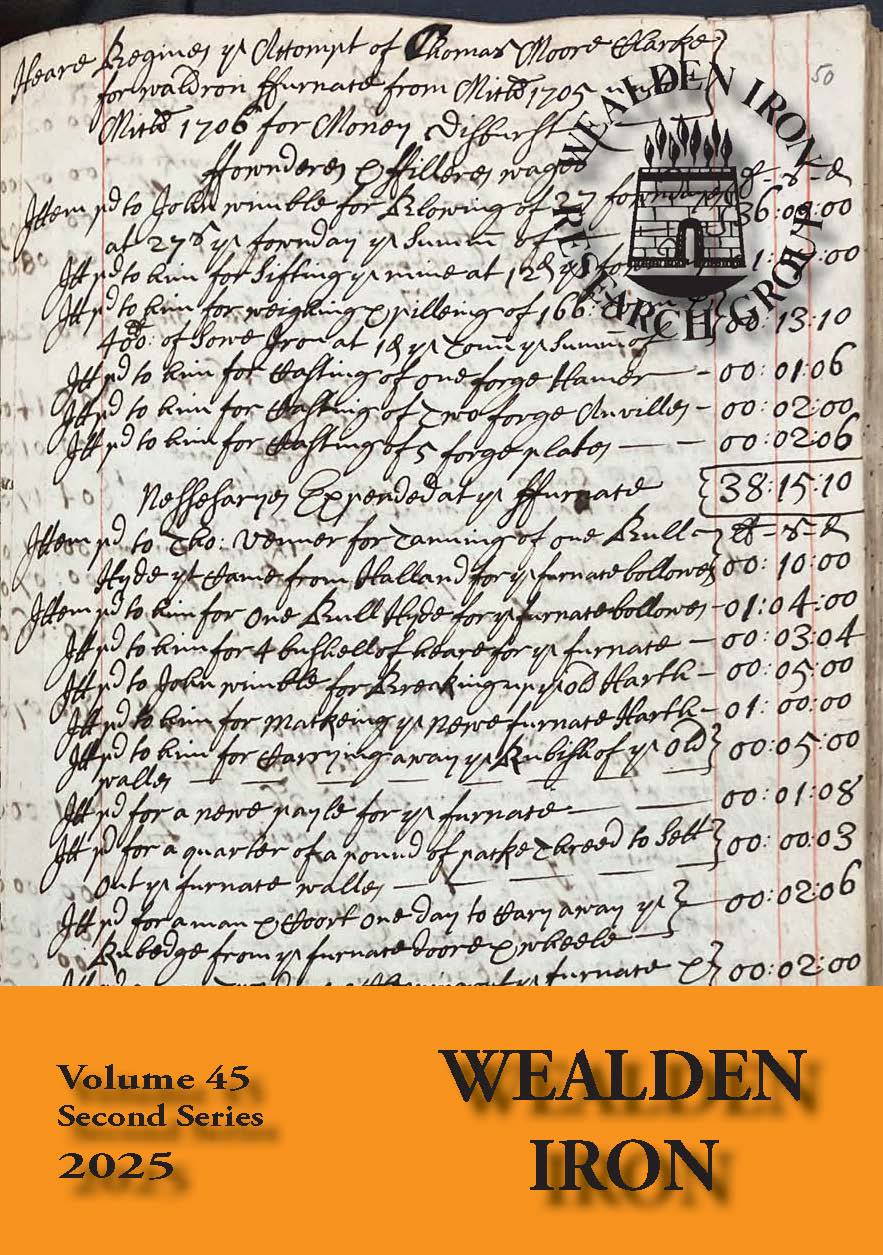 Heare Begines ye Attempt of Thomas Moore Clarke
for waldron ffurnate from Mitls 1705
Mitls 1706 for Money disburst
ffownderes & ffilleres wages
£ - s - d
Ittem pd to John wimble for Blowing of 27 fowndayes
36:09:00
at 27s ye fownday ye Summ of
Itt pd to him for Sifting ye mine at 12d ye
Itt pd to him for weighing & pilleing of 166
00:13:10
400: of Sowe Iron at 1d ye Tonn ye Summ of
Itt pd to him for Casting of one forge Hamer - 00:01:06
Itt pd to him for Casting of Two forge Anvilles - 00:02:00
Itt pd to him for Casting of 5 forge plates - 00:02:06
38:15:10
Nessesaryes Expended at ye ffurnate
£ - s - d
Ittem pd to Tho: Venner for Tanning of one Bull
Hyde yt Came from Halland for ye furnate bollowes 00:10:00
Ittem pd to him for one Bull Hyde for ye furnate bollowes - 01:04:00
Itt pd to him for 4 bushell of heare for ye furnate - 00:03:04
Itt pd to John wimble for Breaking up ye old Harth - 00:05:00
Itt pd to him for Matkeing ye Newe furnate Harth - 01:00:00
Itt pd to him for Carrying away ye Rubish of ye old 00:05:00
walles
Itt pd for a newe payle for ye furnate - 00:01:08
Itt pd for a quarter of a pound of patke Threed to Sett 00:00:03
Out ye furnate walles
Itt pd for a man & Coort one day to Cary away ye 00:02:06
Rubedge from ye furnate doore & wheele
ye furnate & 00:02:00
50
WEALDEN IRON
RESEARCH GROUP
Volume 45
Second Series
2025
WEALDEN
IRON